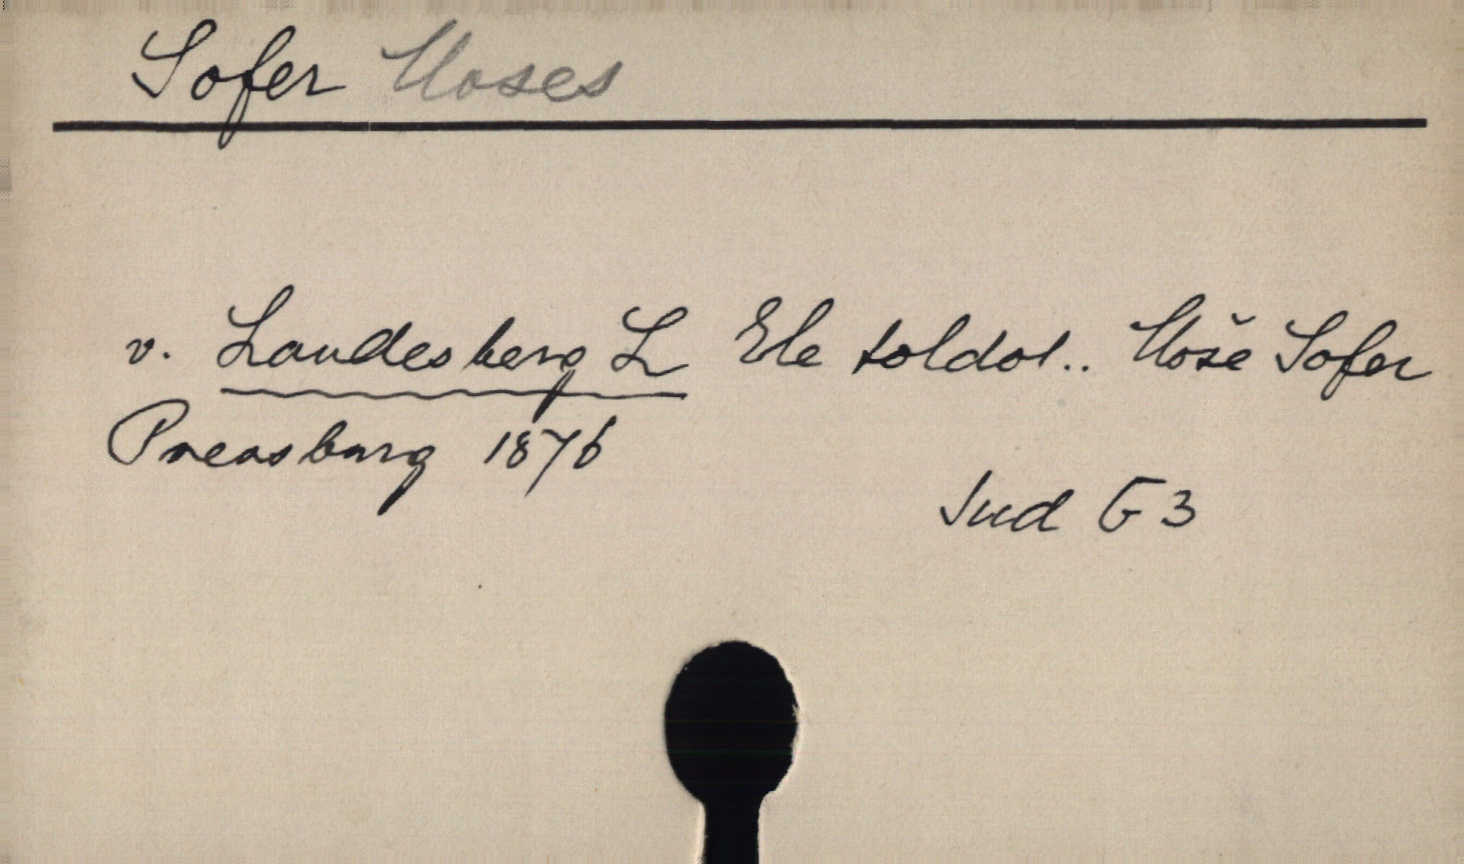 Sofer Moses
v. Landesberg L Ele toldot.. Moše Sofer
Pressburg 1876
Jud G 3